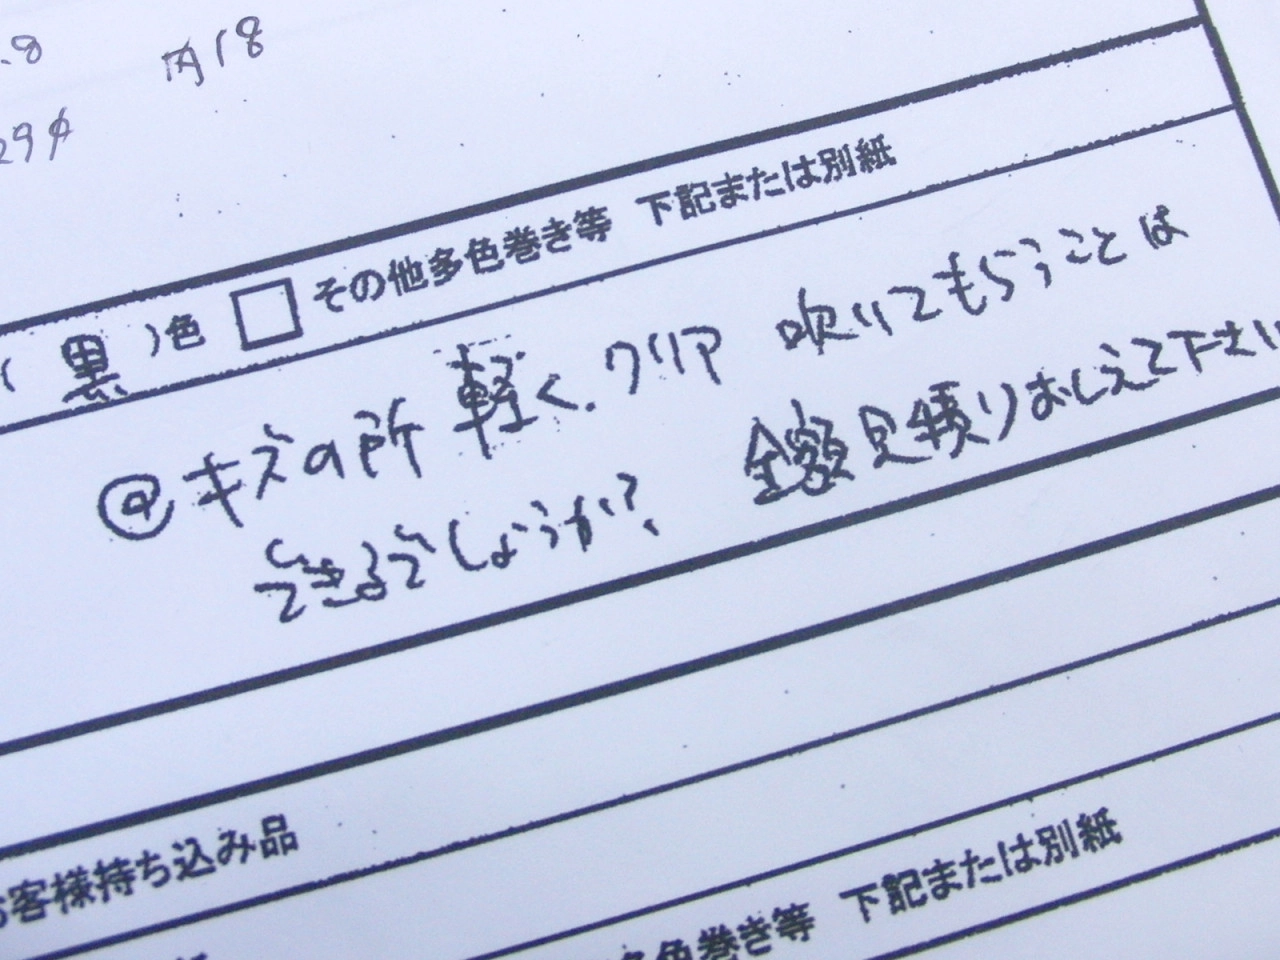 .8 内18
29φ
(黒)色 □ その他多色巻き等 下記または別紙
@キズの所 軽く、クリア 吹いてもらうことは
できるでしょうか? 金額見積りおしえて下さい
お客様持ち込み品
多色巻き等 下記または別紙